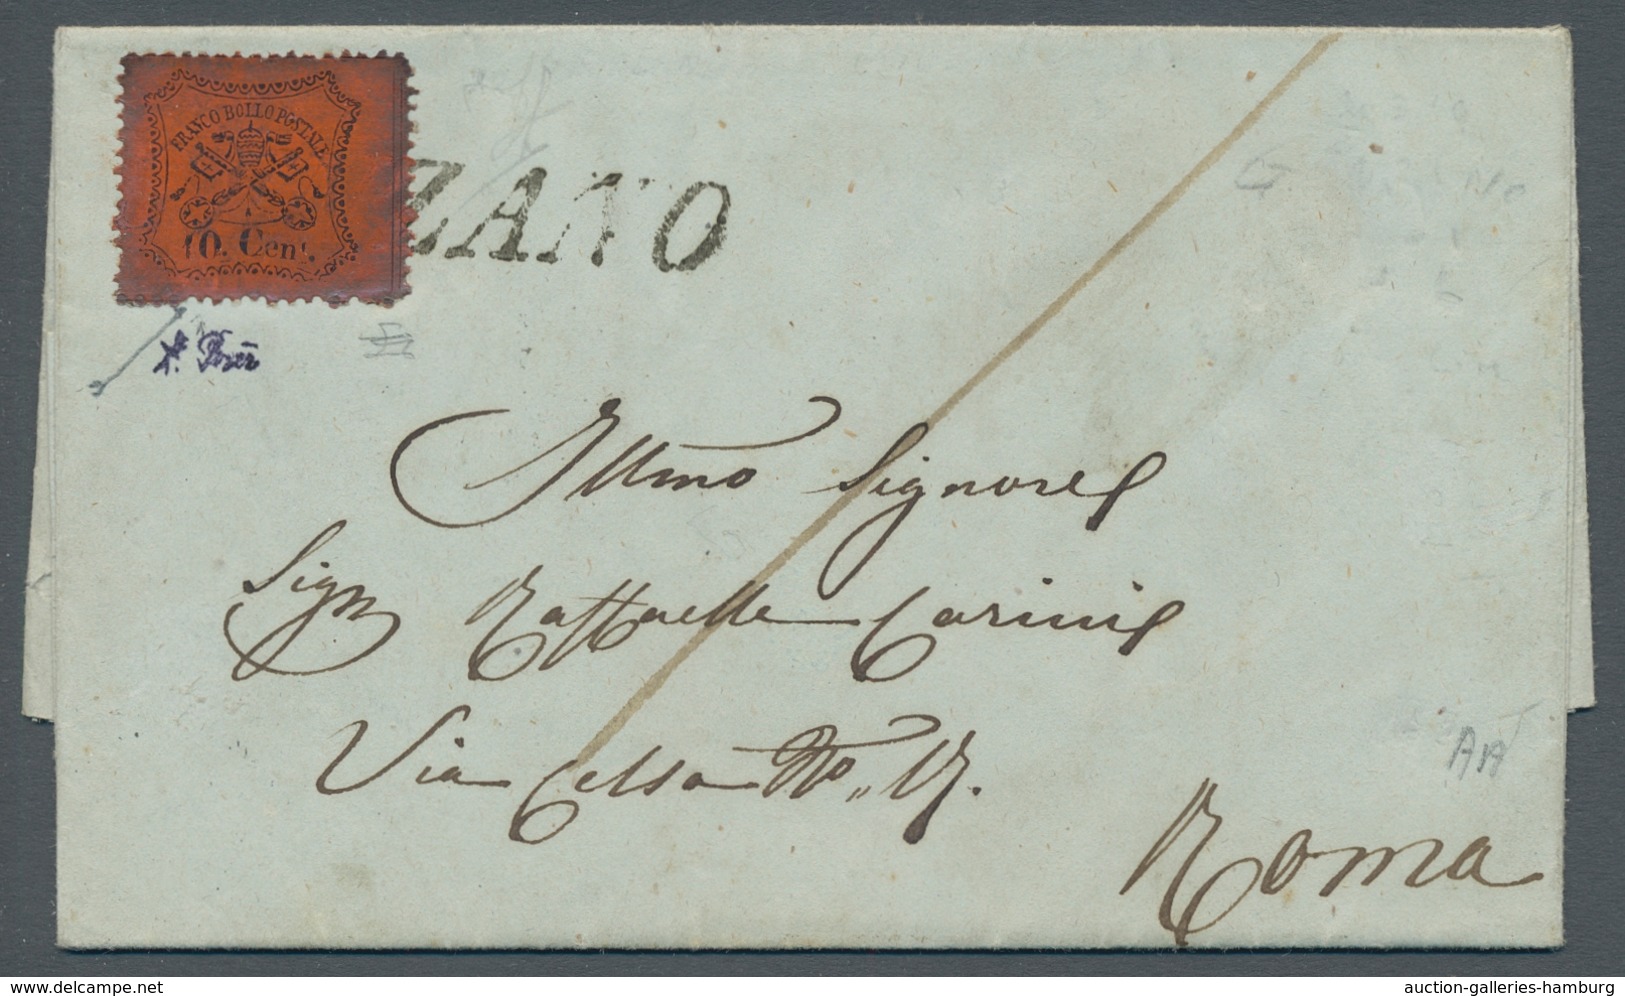 FRANCO BOLLO POSTALE
10. Cent.
ZANO
G
No
Illmo Signore
Sign Raffaelle Carini
Via Celsa No "17.
AA
Roma
www.delcampe.net
auction-galleries-hamburg